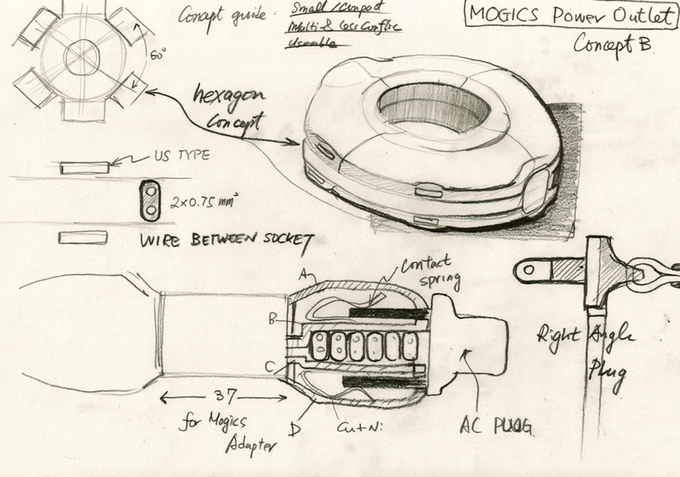 Concept guide: Small/compact
Multi & Less Conflic
Useable
MOGICS Power Outlet
Concept B.
60°
hexagon
Concept
US TYPE
2x0.75 mm²
WIRE BETWEEN SOCKET
A
Contact
spring
B
C
D
Cu+Ni
37
for Mogics
Adapter
AC PLUG.
Right Angle
Plug